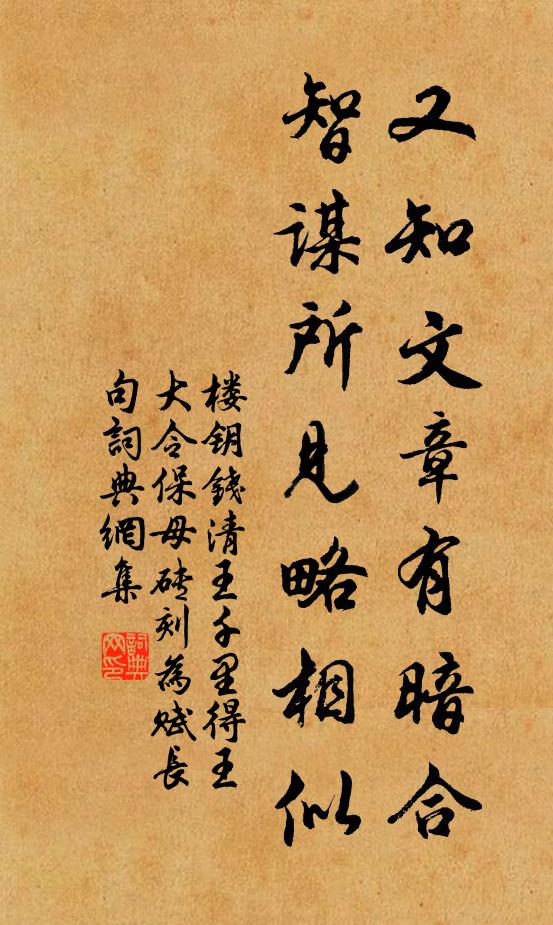 又知文章有暗合
智谋所見略相似
楼钥錢清王千里得王
大令保母砖刻為賦長
句詞典網集
詞典
网印